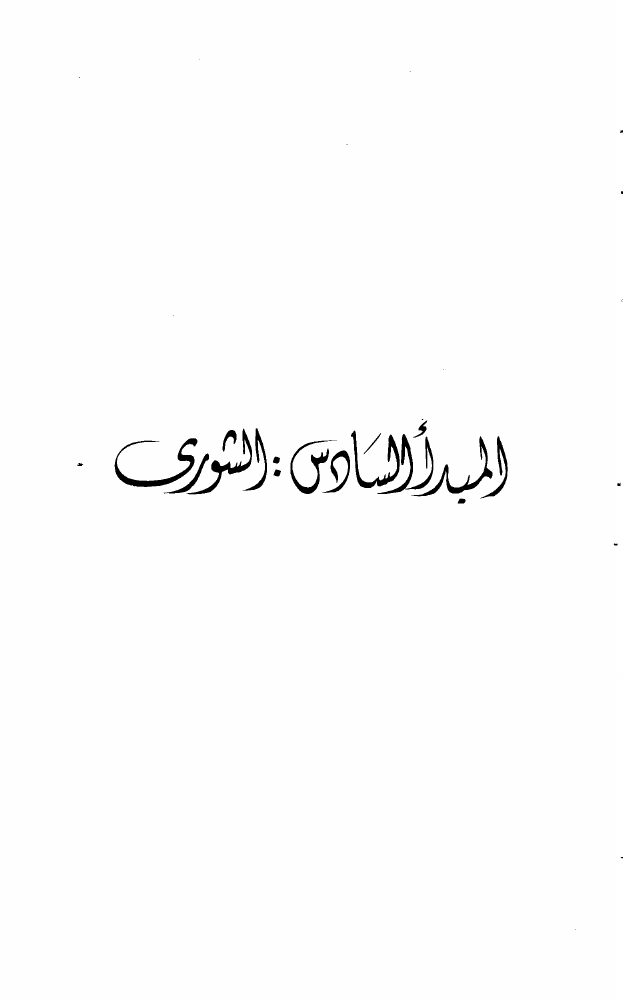 المبدأ السَادس : الشورى